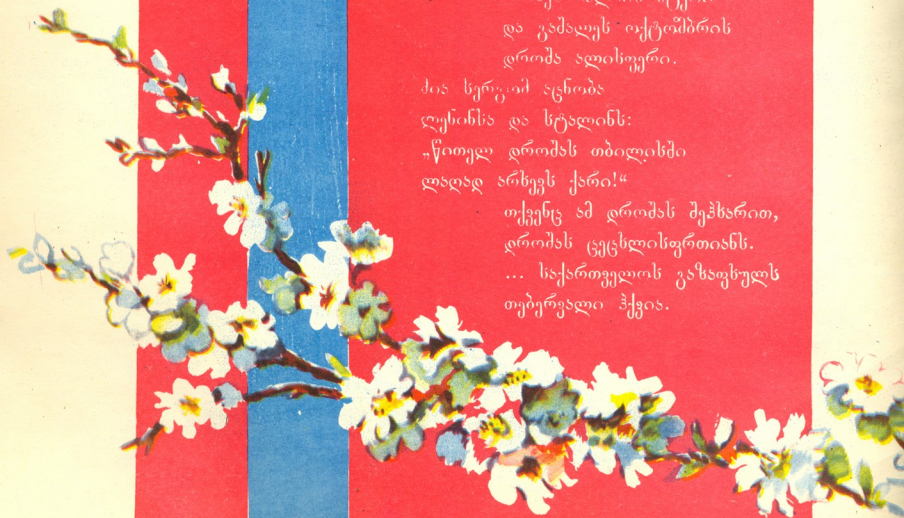 და გაშალეს ოქტომბრის
დროშა ალისფერი.
ძია სერგომ აცნობა
ლენინსა და სტალინს:
„წითელ დროშას თბილისში
ლაღად არხევს ქარი!“
თქვენც ამ დროშას შეჰხარით,
დროშას ცეცხლისფრთიანს.
... საქართველოს გაზაფხულს
თებერვალი ჰქვია.